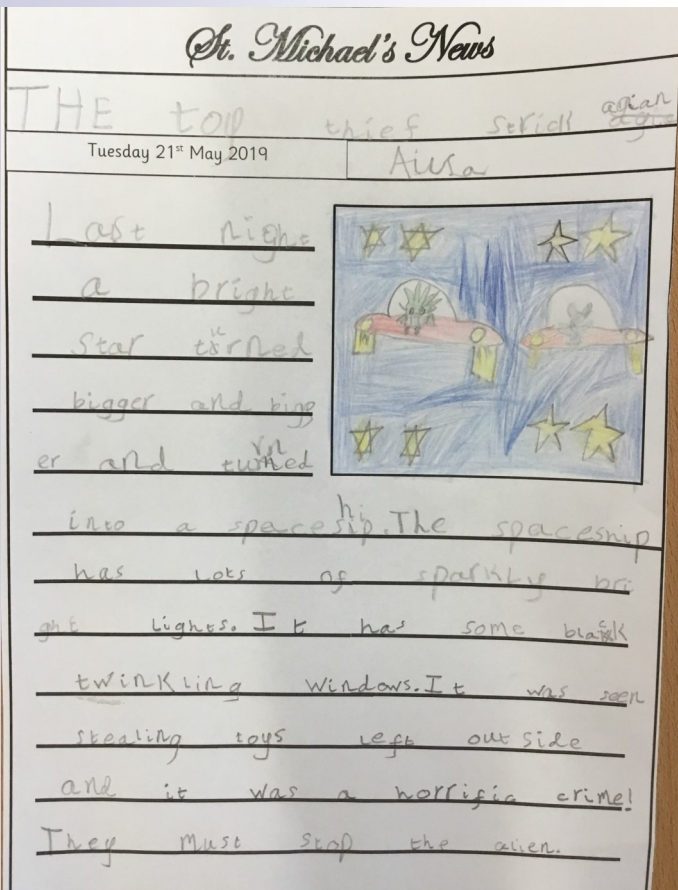 St. Michael's News
THE top thief strick agian
Tuesday 21st May 2019
Last night
a bright
star turned
bigger and bigg
er and turned
into a spaceship. The spaceship
has lots of sparkly bri
ght lights. It has some black
twinkling windows. It was seen
stealing toys left outside
and it was a horrific crime!
They must stop the alien.